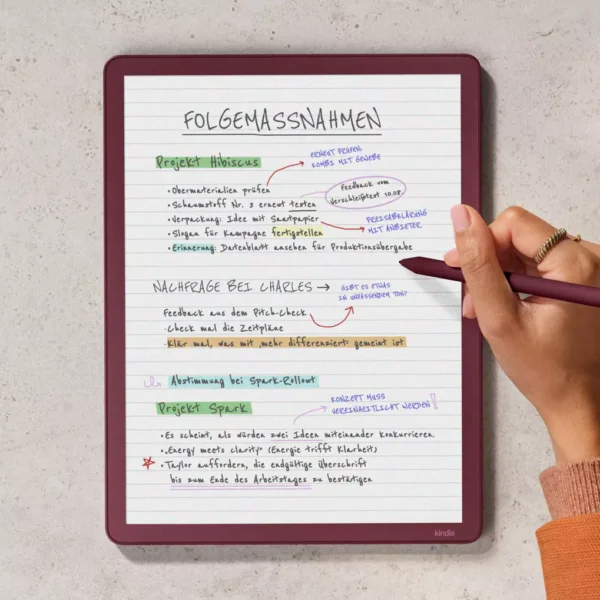 FOLGEMASSNAHMEN
Projekt Hibiscus
ERNEUT PRÜFEN
KOMBI MIT GEWEBE
• Obermaterialien prüfen
• Schaumstoff Nr. 3 erneut testen
Feedback vom
Verschleißtest 10.08.
• Verpackung: Idee mit Saatpapier
PREISABKLÄRUNG
MIT ANBIETER
• Slogan für Kampagne fertigstellen
• Erinnerung: Datenblatt ansehen für Produktionsübergabe
NACHFRAGE BEI CHARLES →
GIBT ES ETWAS
IN UMFASSENDEM TON?
Feedback aus dem Pitch-Check
• Check mal die Zeitpläne
• Klär mal, was mit ‚mehr differenziert' gemeint ist
Abstimmung bei Spark-Rollout
Projekt Spark
KONZEPT MUSS
VEREINHEITLICHT WERDEN!
• Es scheint, als würden zwei Ideen miteinander konkurrieren.
• „Energy meets clarity" (Energie trifft Klarheit)
• Taylor auffordern, die endgültige Überschrift
bis zum Ende des Arbeitstages zu bestätigen
kindle